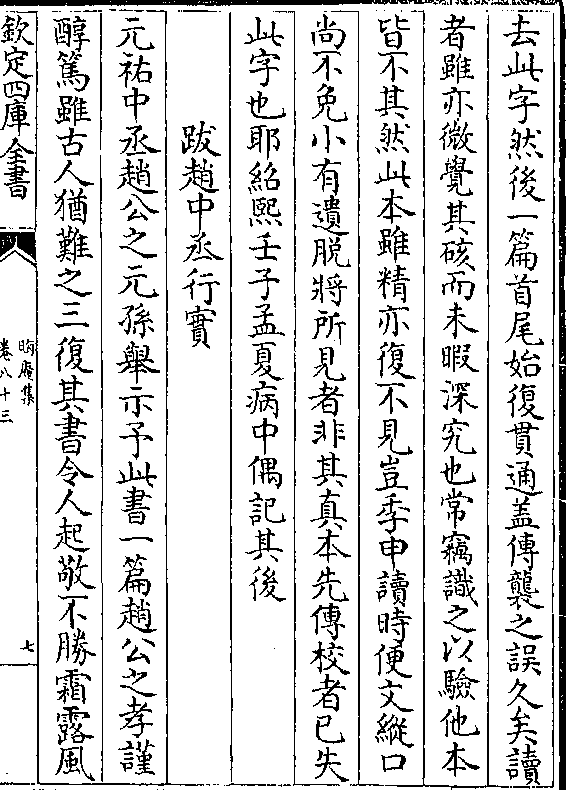 去此字然後一篇首尾始復貫通盖傳襲之誤久矣讀
者雖亦微覺其硋而未暇深究也常竊識之以驗他本
皆不其然此本雖精亦復不見豈季申讀時便文縱口
尚不免小有遺脱將所見者非其真本先傳校者已失
此字也耶紹熙壬子孟夏病中偶記其後
跋趙中丞行實
元祐中丞趙公之元孫舉示予此書一篇趙公之孝謹
醇篤雖古人猶難之三復其書令人起敬不勝霜露風
欽定四庫全書
晦庵集
卷八十三
七